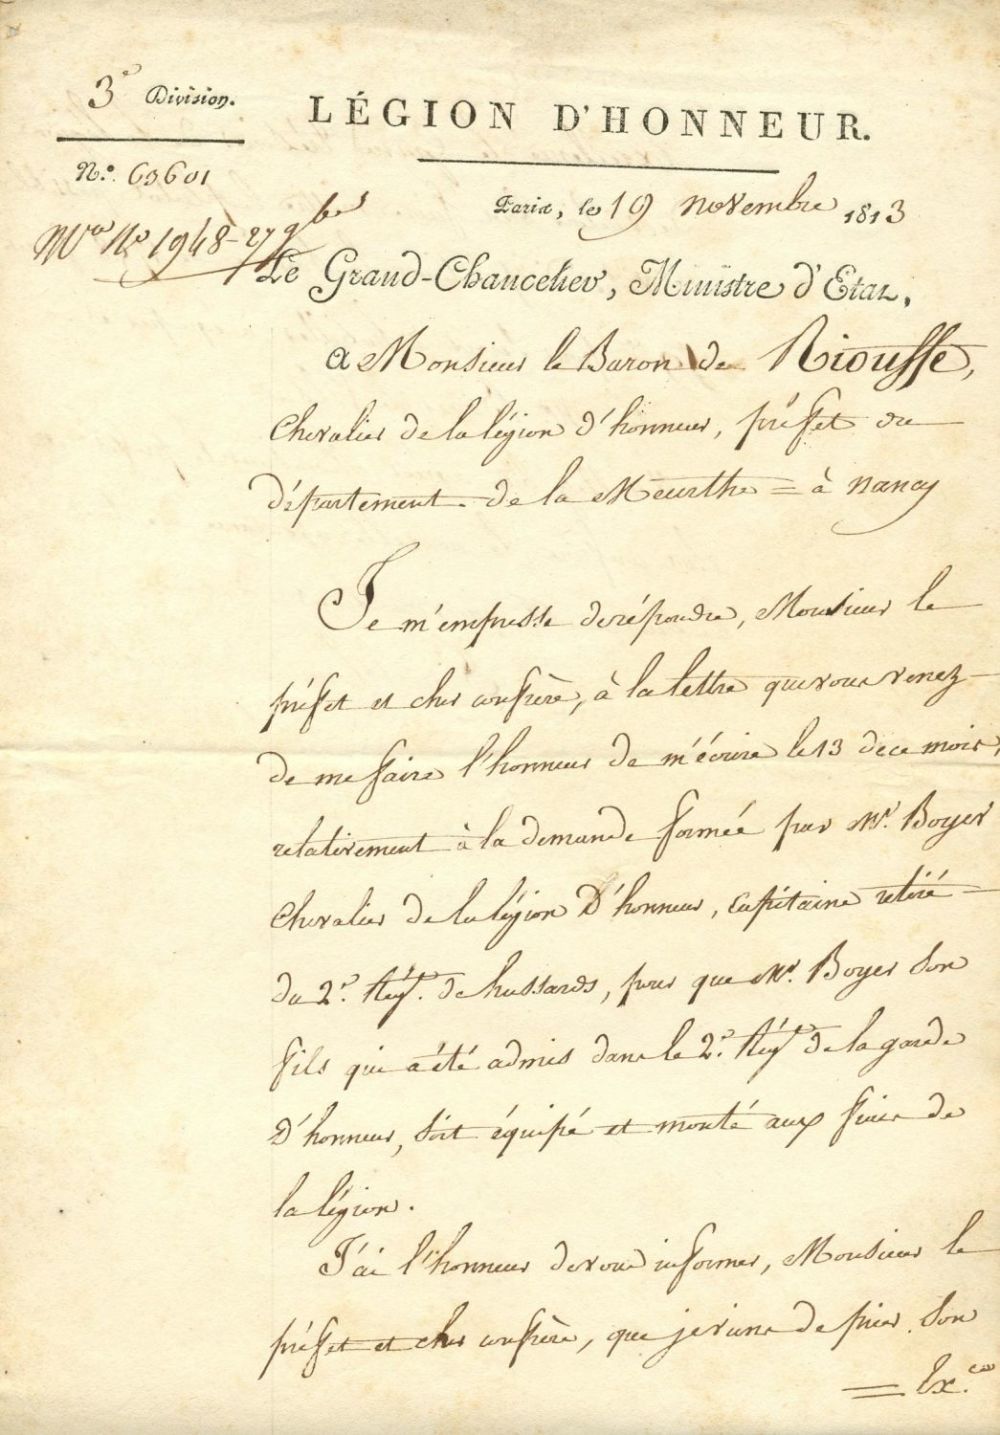 3e Division.
LÉGION D'HONNEUR.
N.º 63601
Paris, le 19 novembre 1813
Nº 1948-27 9bre
Le Grand-Chancelier, Ministre d'Etat,
a Monsieur le Baron de Riouffe,
Chevalier de la légion d'honneur, préffet du
département de la Meurthe = à nancy
Je m'empresse de répondre, Monsieur le
préffet et cher confrère, à la lettre que vous venez
de me faire l'honneur de m'écrire le 13 de ce mois,
relativement à la demande formée par Mr. Boyer
Chevalier de la légion D'honneur, Capitaine retiré
du 2e. Régt. de hussards, pour que Mr. Boyer Son
fils qui a été admis dans le 2e. Régt de la garde
D'honneur, Soit équipé et monté aux frais de
la légion.
J'ai l'honneur de vous informer, Monsieur le
préffet et cher confrère, que je viens de prier Son
= Ex.ce